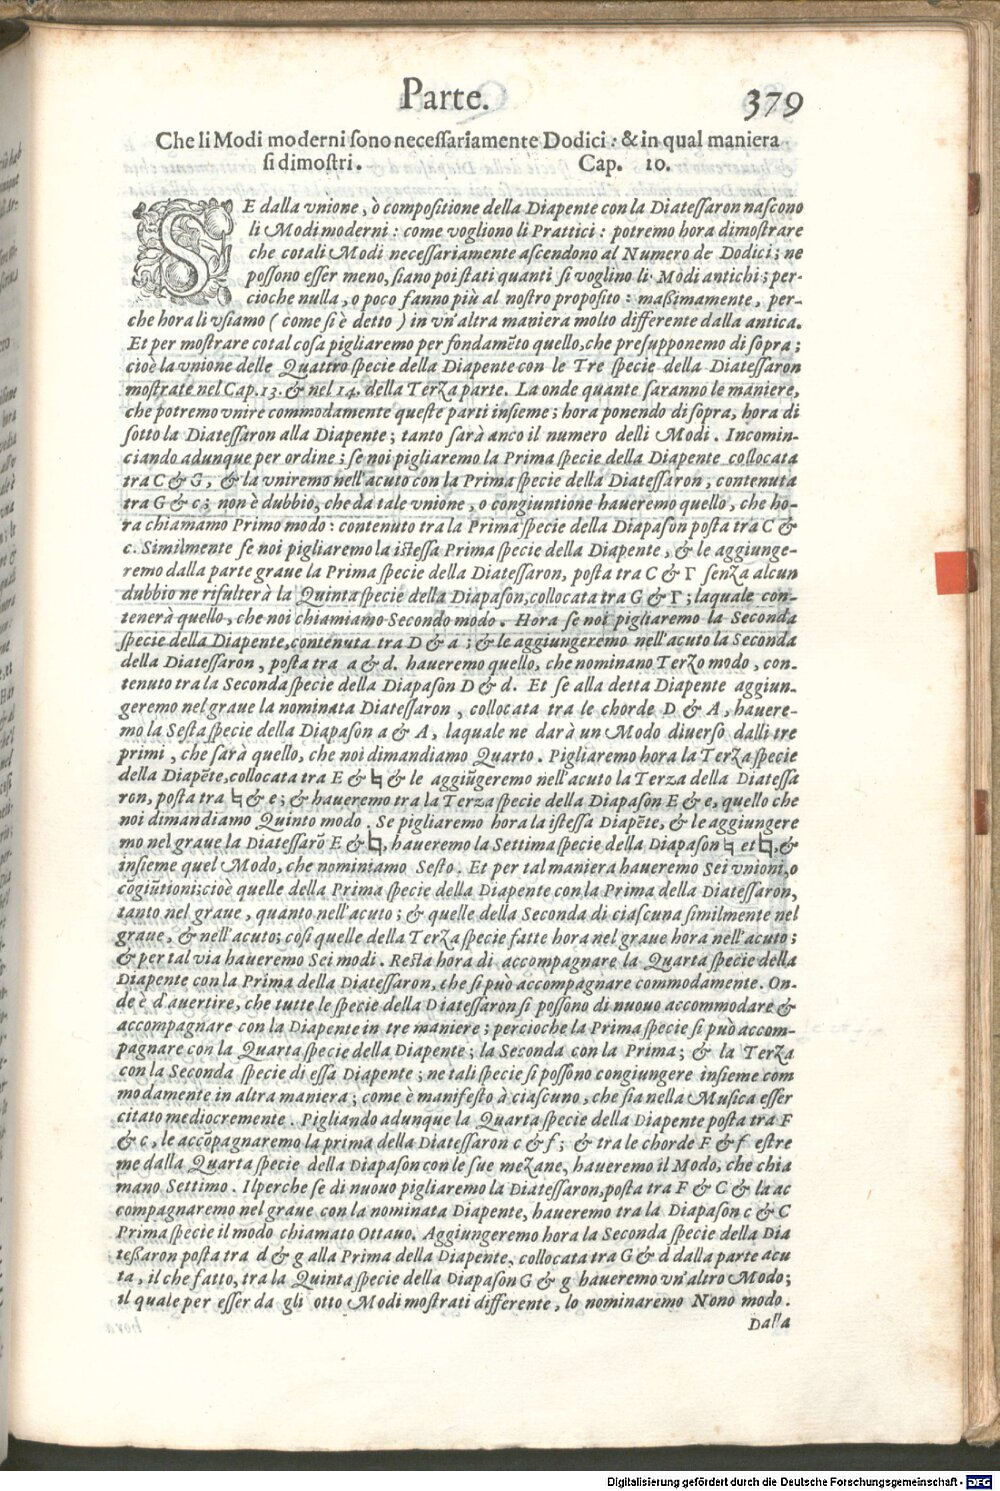 Parte. 379
Che li Modi moderni ſono neceſſariamente Dodici: & in qual maniera
ſi dimoſtri. Cap. 10.
SE dalla vnione, ò compoſitione della Diapente con la Diateſſaron naſcono
li Modi moderni: come vogliono li Prattici: potremo hora dimoſtrare
che cotali Modi neceſſariamente aſcendono al Numero de Dodici; ne
poſſono eſſer meno, ſiano poi ſtati quanti ſi voglino li Modi antichi; per-
cioche nulla, o poco fanno più al noſtro propoſito: maßimamente, per-
che hora li vſiamo (come ſi è detto) in vn'altra maniera molto differente dalla antica.
Et per moſtrare cotal coſa pigliaremo per fondamẽto quello, che preſupponemo di ſopra;
cioè la vnione delle Quattro ſpecie della Diapente con le Tre ſpecie della Diateſſaron
moſtrate nel Cap. 13. & nel 14. della Terza parte. La onde quante ſaranno le maniere,
che potremo vnire commodamente queſte parti inſieme; hora ponendo di ſopra, hora di
ſotto la Diateſſaron alla Diapente; tanto ſarà anco il numero delli Modi. Incomin-
ciando adunque per ordine; ſe noi pigliaremo la Prima ſpecie della Diapente collocata
tra C & G, & la vniremo nell'acuto con la Prima ſpecie della Diateſſaron, contenuta
tra G & c; non è dubbio, che da tale vnione, o congiuntione haueremo quello, che ho-
ra chiamamo Primo modo: contenuto tra la Prima ſpecie della Diapaſon poſta tra C &
c. Similmente ſe noi pigliaremo la iſteſſa Prima ſpecie della Diapente, & le aggiunge-
remo dalla parte graue la Prima ſpecie della Diateſſaron, poſta tra C & Γ ſenza alcun
dubbio ne riſulterà la Quinta ſpecie della Diapaſon, collocata tra G & Γ; laquale con-
tenerà quello, che noi chiamiamo Secondo modo. Hora ſe noi pigliaremo la Seconda
ſpecie della Diapente, contenuta tra D & a; & le aggiungeremo nell'acuto la Seconda
della Diateſſaron, poſta tra a & d. haueremo quello, che nominano Terzo modo, con-
tenuto tra la Seconda ſpecie della Diapaſon D & d. Et ſe alla detta Diapente aggiun-
geremo nel graue la nominata Diateſſaron, collocata tra le chorde D & A, hauere-
mo la Seſta ſpecie della Diapaſon a & A, laquale ne darà un Modo diuerſo dalli tre
primi, che ſarà quello, che noi dimandiamo Quarto. Pigliaremo hora la Terza ſpecie
della Diapẽte, collocata tra E & ♮ & le aggiũgeremo nell'acuto la Terza della Diateſſa
ron, poſta tra ♮ & e; & haueremo tra la Terza ſpecie della Diapaſon E & e, quello che
noi dimandiamo Quinto modo. Se pigliaremo hora la iſteſſa Diapẽte, & le aggiungere
mo nel graue la Diateſſarõ E & ♮, haueremo la Settima ſpecie della Diapaſon ♮ et ♮, &
inſieme quel Modo, che nominiamo Seſto. Et per tal maniera haueremo Sei vnioni, o
cõgiũtioni; cioè quelle della Prima ſpecie della Diapente con la Prima della Diateſſaron,
tanto nel graue, quanto nell'acuto; & quelle della Seconda di ciaſcuna ſimilmente nel
graue, & nell'acuto; coſi quelle della Terza ſpecie fatte hora nel graue hora nell'acuto;
& per tal via haueremo Sei modi. Reſta hora di accompagnare la Quarta ſpecie della
Diapente con la Prima della Diateſſaron, che ſi può accompagnare commodamente. On-
de è d'auertire, che tutte le ſpecie della Diateſſaron ſi poſſono di nuouo accommodare &
accompagnare con la Diapente in tre maniere; percioche la Prima ſpecie ſi può accom-
pagnare con la Quarta ſpecie della Diapente; la Seconda con la Prima; & la Terza
con la Seconda ſpecie di eſſa Diapente; ne tali ſpecie ſi poſſono congiungere inſieme com
modamente in altra maniera; come è manifeſto à ciaſcuno, che ſia nella Muſica eſſer
citato mediocremente. Pigliando adunque la Quarta ſpecie della Diapente poſta tra F
& c, le accõpagnaremo la prima della Diateſſaron c & f; & tra le chorde F & f eſtre
me dalla Quarta ſpecie della Diapaſon con le ſue mezane, haueremo il Modo, che chia
mano Settimo. Ilperche ſe di nuouo pigliaremo la Diateſſaron, poſta tra F & C & la ac
compagnaremo nel graue con la nominata Diapente, haueremo tra la Diapaſon c & C
Prima ſpecie il modo chiamato Ottauo. Aggiungeremo hora la Seconda ſpecie della Dia
teßaron poſta tra d & g alla Prima della Diapente, collocata tra G & d dalla parte acu
ta, il che fatto, tra la Quinta ſpecie della Diapaſon G & g haueremo vn'altro Modo;
il quale per eſſer da gli otto Modi moſtrati differente, lo nominaremo Nono modo.
Dalla
Digitalisierung gefördert durch die Deutsche Forschungsgemeinschaft - DFG